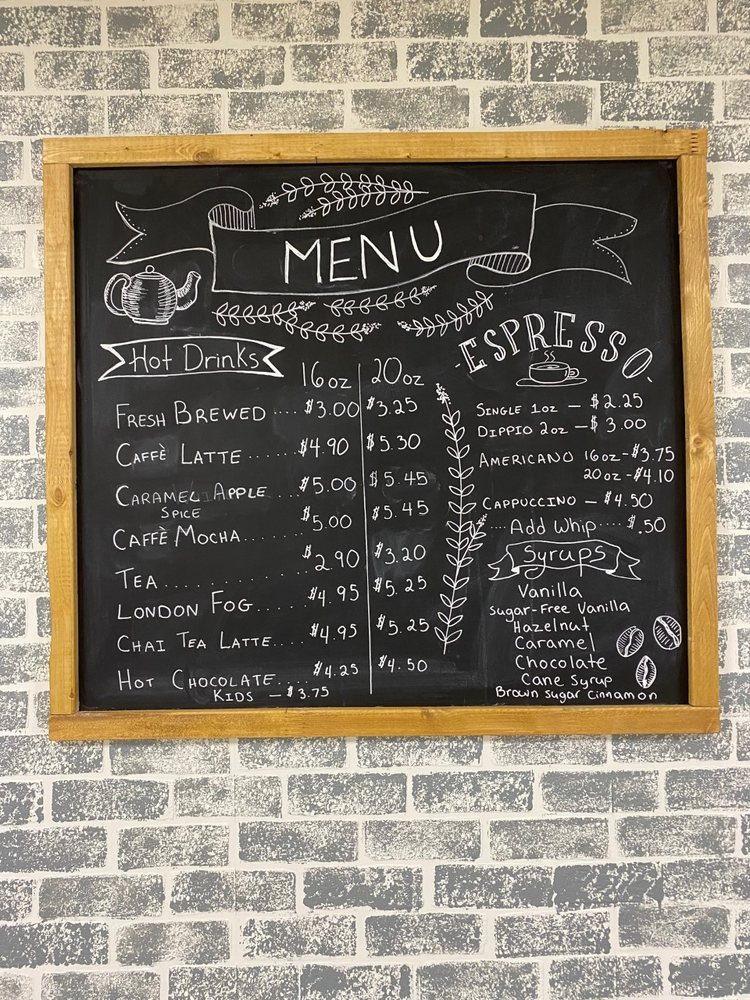 MENU
Hot Drinks
16oz 20oz
FRESH BREWED .... $3.00 $3.25
CAFFÈ LATTE ...... $4.90 $5.30
CARAMEL APPLE ... $5.00 $5.45
SPICE
CAFFÈ MOCHA ....... $5.00 $5.45
TEA ............. $2.90 $3.20
LONDON FOG ..... $4.95 $5.25
CHAI TEA LATTE ... $4.95 $5.25
HOT CHOCOLATE .... $4.25 $4.50
KIDS — $3.75
ESPRESSO
SINGLE 1oz — $2.25
DIPPIO 2oz — $3.00
AMERICANO 16oz - $3.75
20oz - $4.10
CAPPUCCINO — $4.50
.... Add Whip .... $.50
Syrups
Vanilla
Sugar-Free Vanilla
Hazelnut
Caramel
Chocolate
Cane Syrup
Brown Sugar Cinnamon